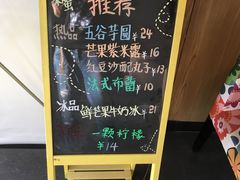 推荐
热品 五谷芋圆 ¥24
芒果紫米露 ¥16
红豆沙配丸子 ¥13
法式布蕾 ¥10
冰品 鲜芒果牛奶冰 ¥21
一颗柠檬
¥14